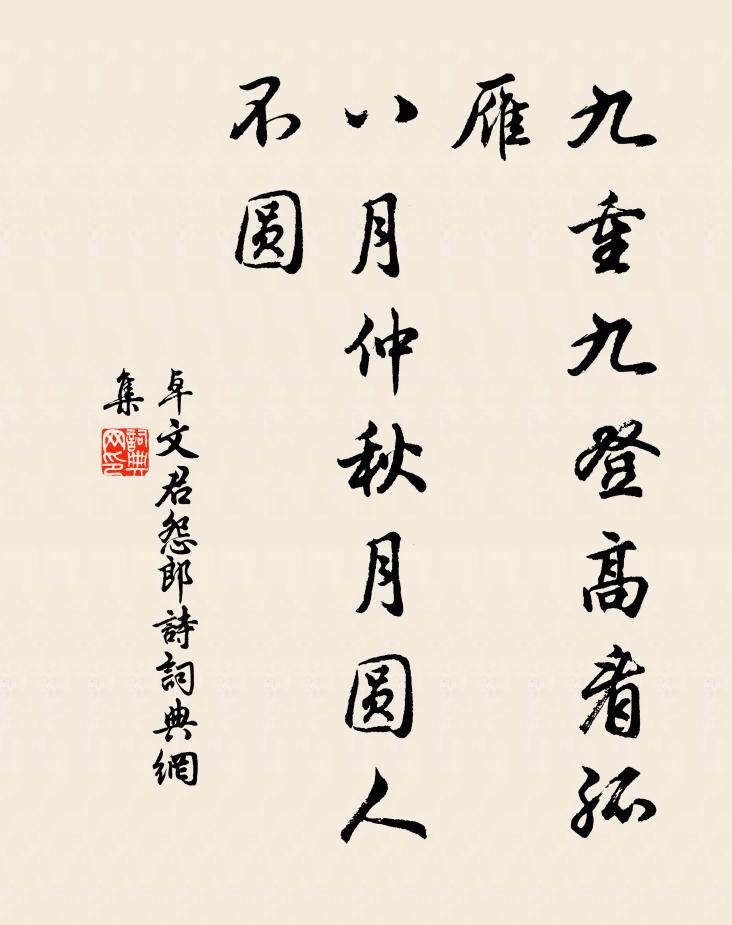 九重九登高看孤
雁
八月仲秋月圆人
不圆
卓文君怨郎詩詞典網
集
詞典
网印